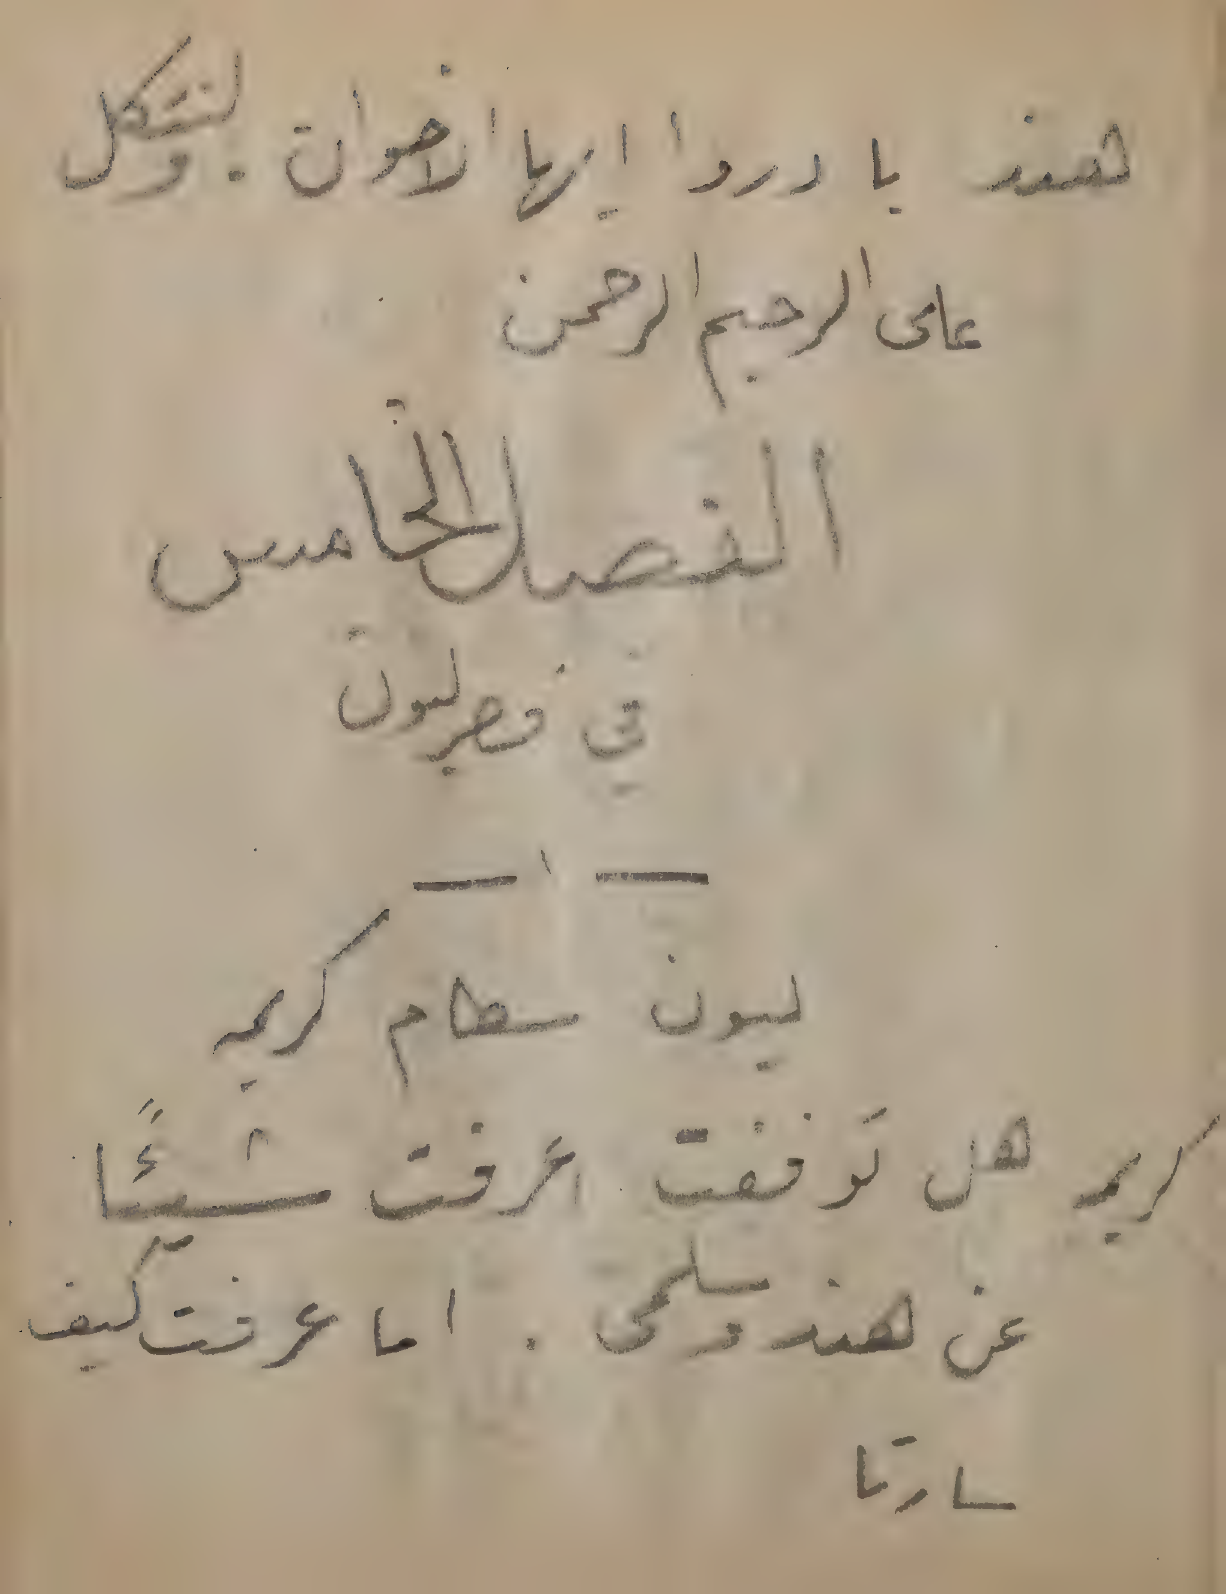 هند بادروا ايها الاخوان . ولنتكل
على الرحيم الرحمن
الفصل الخامس
في قصر ليون
— ١ —
ليون سطام كريم
كريم هل توفقت اعرفت شيئًا
عن هند وسلمى . اما عرفت كيف
سارتا